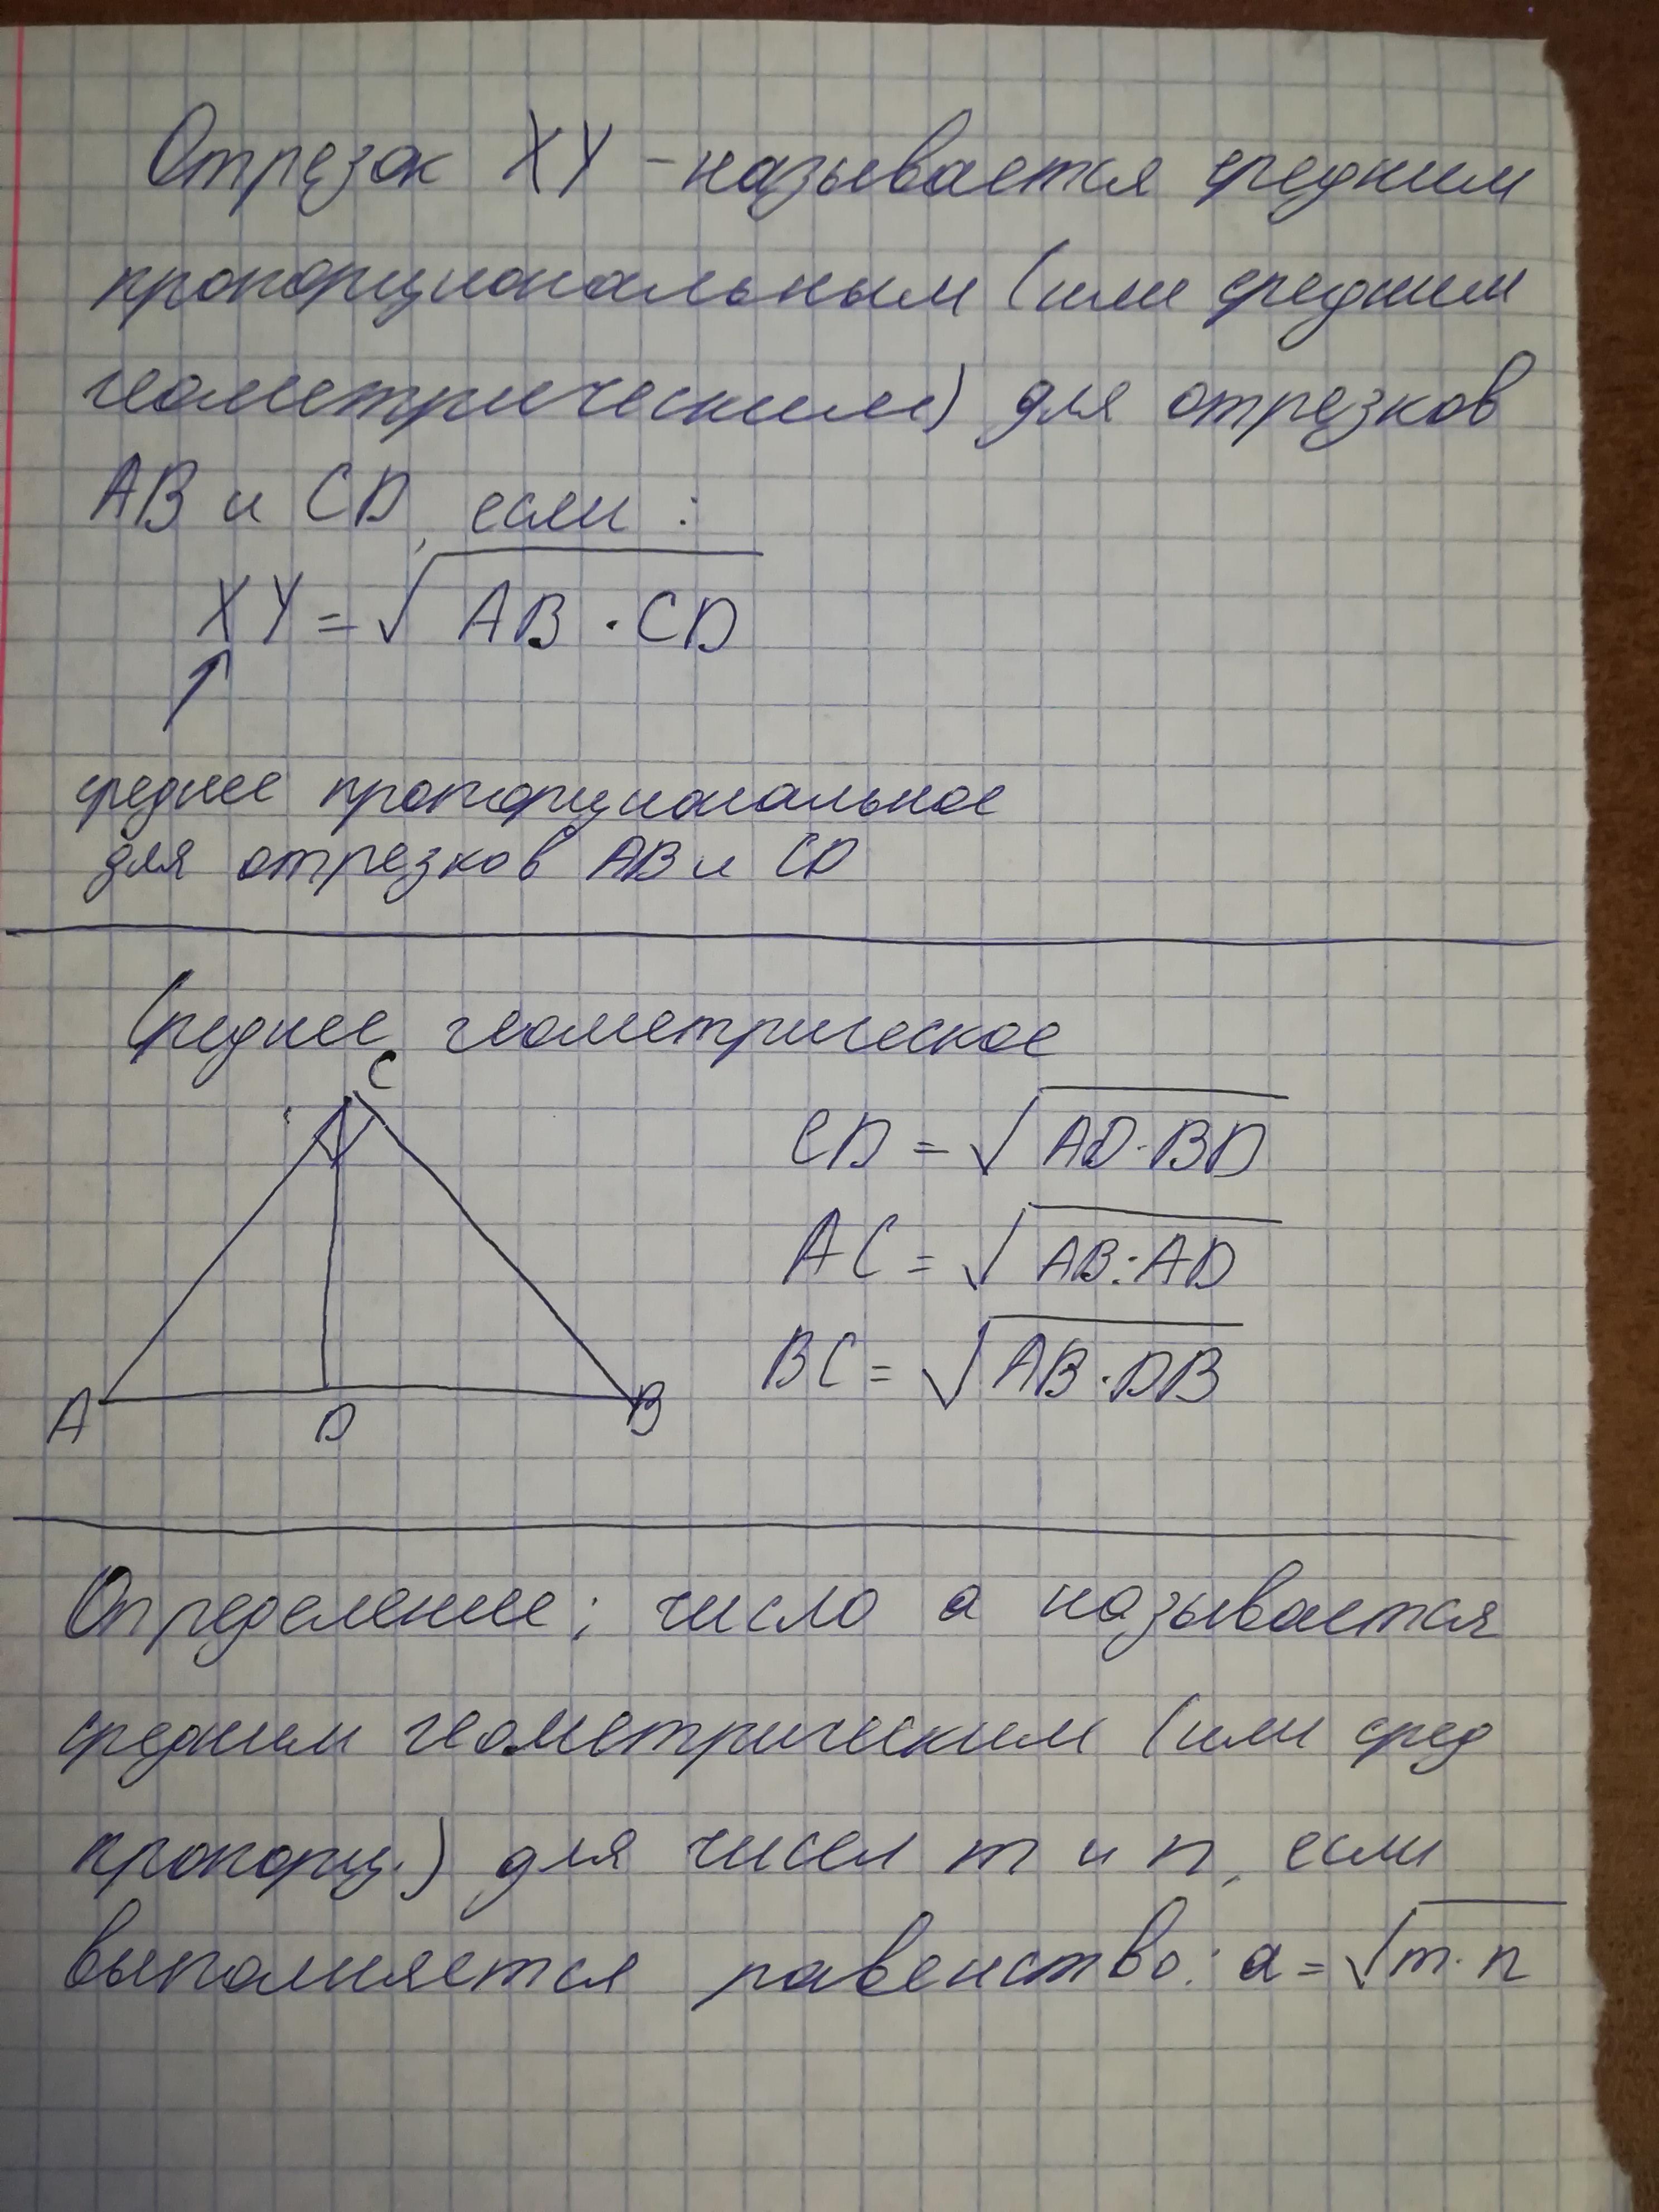 Отрезок XY - называется средним
пропорциональным (или средним
геометрическим) для отрезков
AB и CD, если :
XY = √AB · CD
среднее пропорциональное
для отрезков AB и CD
Среднее геометрическое
C
A
D
B
CD = √AD · BD
AC = √AB · AD
BC = √AB · DB
Определение: число a называется
средним геометрическим (или сред
пропорц.) для чисел m и n, если
выполняется равенство: a = √m · n